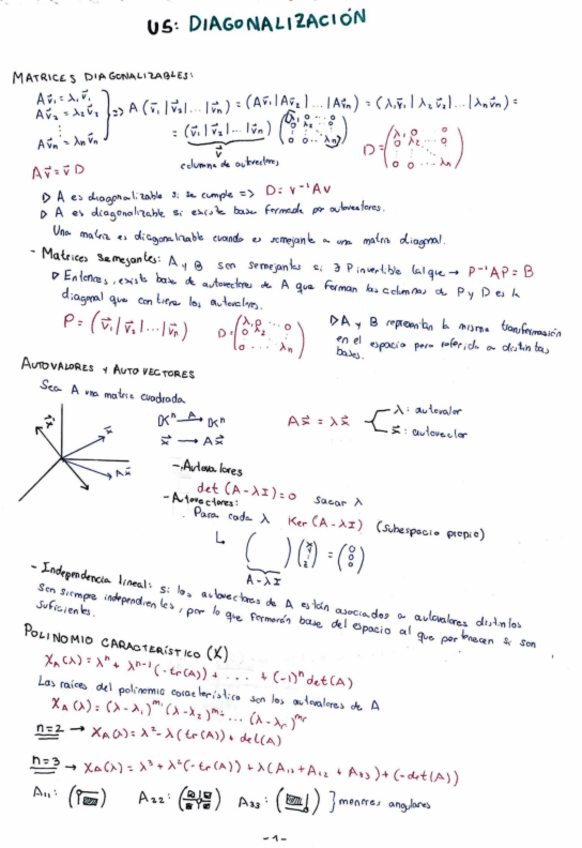 U5: DIAGONALIZACIÓN
MATRICES DIAGONALIZABLES:
Av⃗₁ = λ₁v⃗₁
Av⃗₂ = λ₂v⃗₂
⋮
Av⃗n = λnv⃗n
=> A (v⃗₁ | v⃗₂ | ... | v⃗n) = (Av⃗₁ | Av⃗₂ | ... | Av⃗n) = (λ₁v⃗₁ | λ₂v⃗₂ | ... | λnv⃗n) =
= (v⃗₁ | v⃗₂ | ... | v⃗n) (λ₁ 0 ... 0 0 λ₂ ... 0 0 0 ... λn)
D = (λ₁ 0 ... 0 0 λ₂ ... 0 0 0 ... λn)
v⃗
columna de autovectores
Av⃗ = v⃗ D
▷ A es diagonalizable si se cumple => D = V⁻¹AV
▷ A es diagonalizable si existe base formada por autovectores.
Una matriz es diagonalizable cuando es semejante a una matriz diagonal.
- Matrices semejantes: A y B son semejantes si ∃ P invertible tal que → P⁻¹AP = B
▷ Entonces, existe base de autovectores de A que forman las columnas de P y D es la
diagonal que contiene los autovalores.
P = (v⃗₁ | v⃗₂ | ... | v⃗n)
D = (λ₁ 0 ... 0 0 λ₂ ... 0 0 ... λn)
▷ A y B representan la misma transformación
en el espacio pero referido a distintas
bases.
AUTOVALORES Y AUTOVECTORES
Sea A una matriz cuadrada
𝕂ⁿ —A→ 𝕂ⁿ
x⃗ → Ax⃗
Ax⃗ = λx⃗
λ: autovalor
x⃗: autovector
x⃗
x⃗
Ax⃗
- Autovalores
det (A - λI) = 0 sacar λ
- Autovectores:
Para cada λ Ker (A - λI) (subespacio propio)
↳ ( ) (x y z) = (0 0 0)
A - λI
- Independencia lineal: si los autovectores de A están asociados a autovalores distintos
son siempre independientes, por lo que formarán base del espacio al que pertenecen si son
suficientes.
POLINOMIO CARACTERÍSTICO (X)
χA(λ) = λⁿ + λⁿ⁻¹(-tr(A)) + ... + (-1)ⁿ det(A)
Las raíces del polinomio característico son los autovalores de A
χA(λ) = (λ-λ₁)^m₁ (λ-λ₂)^m₂ ... (λ-λr)^mr
n=2 → χA(λ) = λ² - λ(tr(A)) + det(A)
n=3 → χA(λ) = λ³ + λ²(-tr(A)) + λ(A₁₁ + A₂₂ + A₃₃) + (-det(A))
A₁₁: A₂₂: A₃₃: } menores angulares
-1-